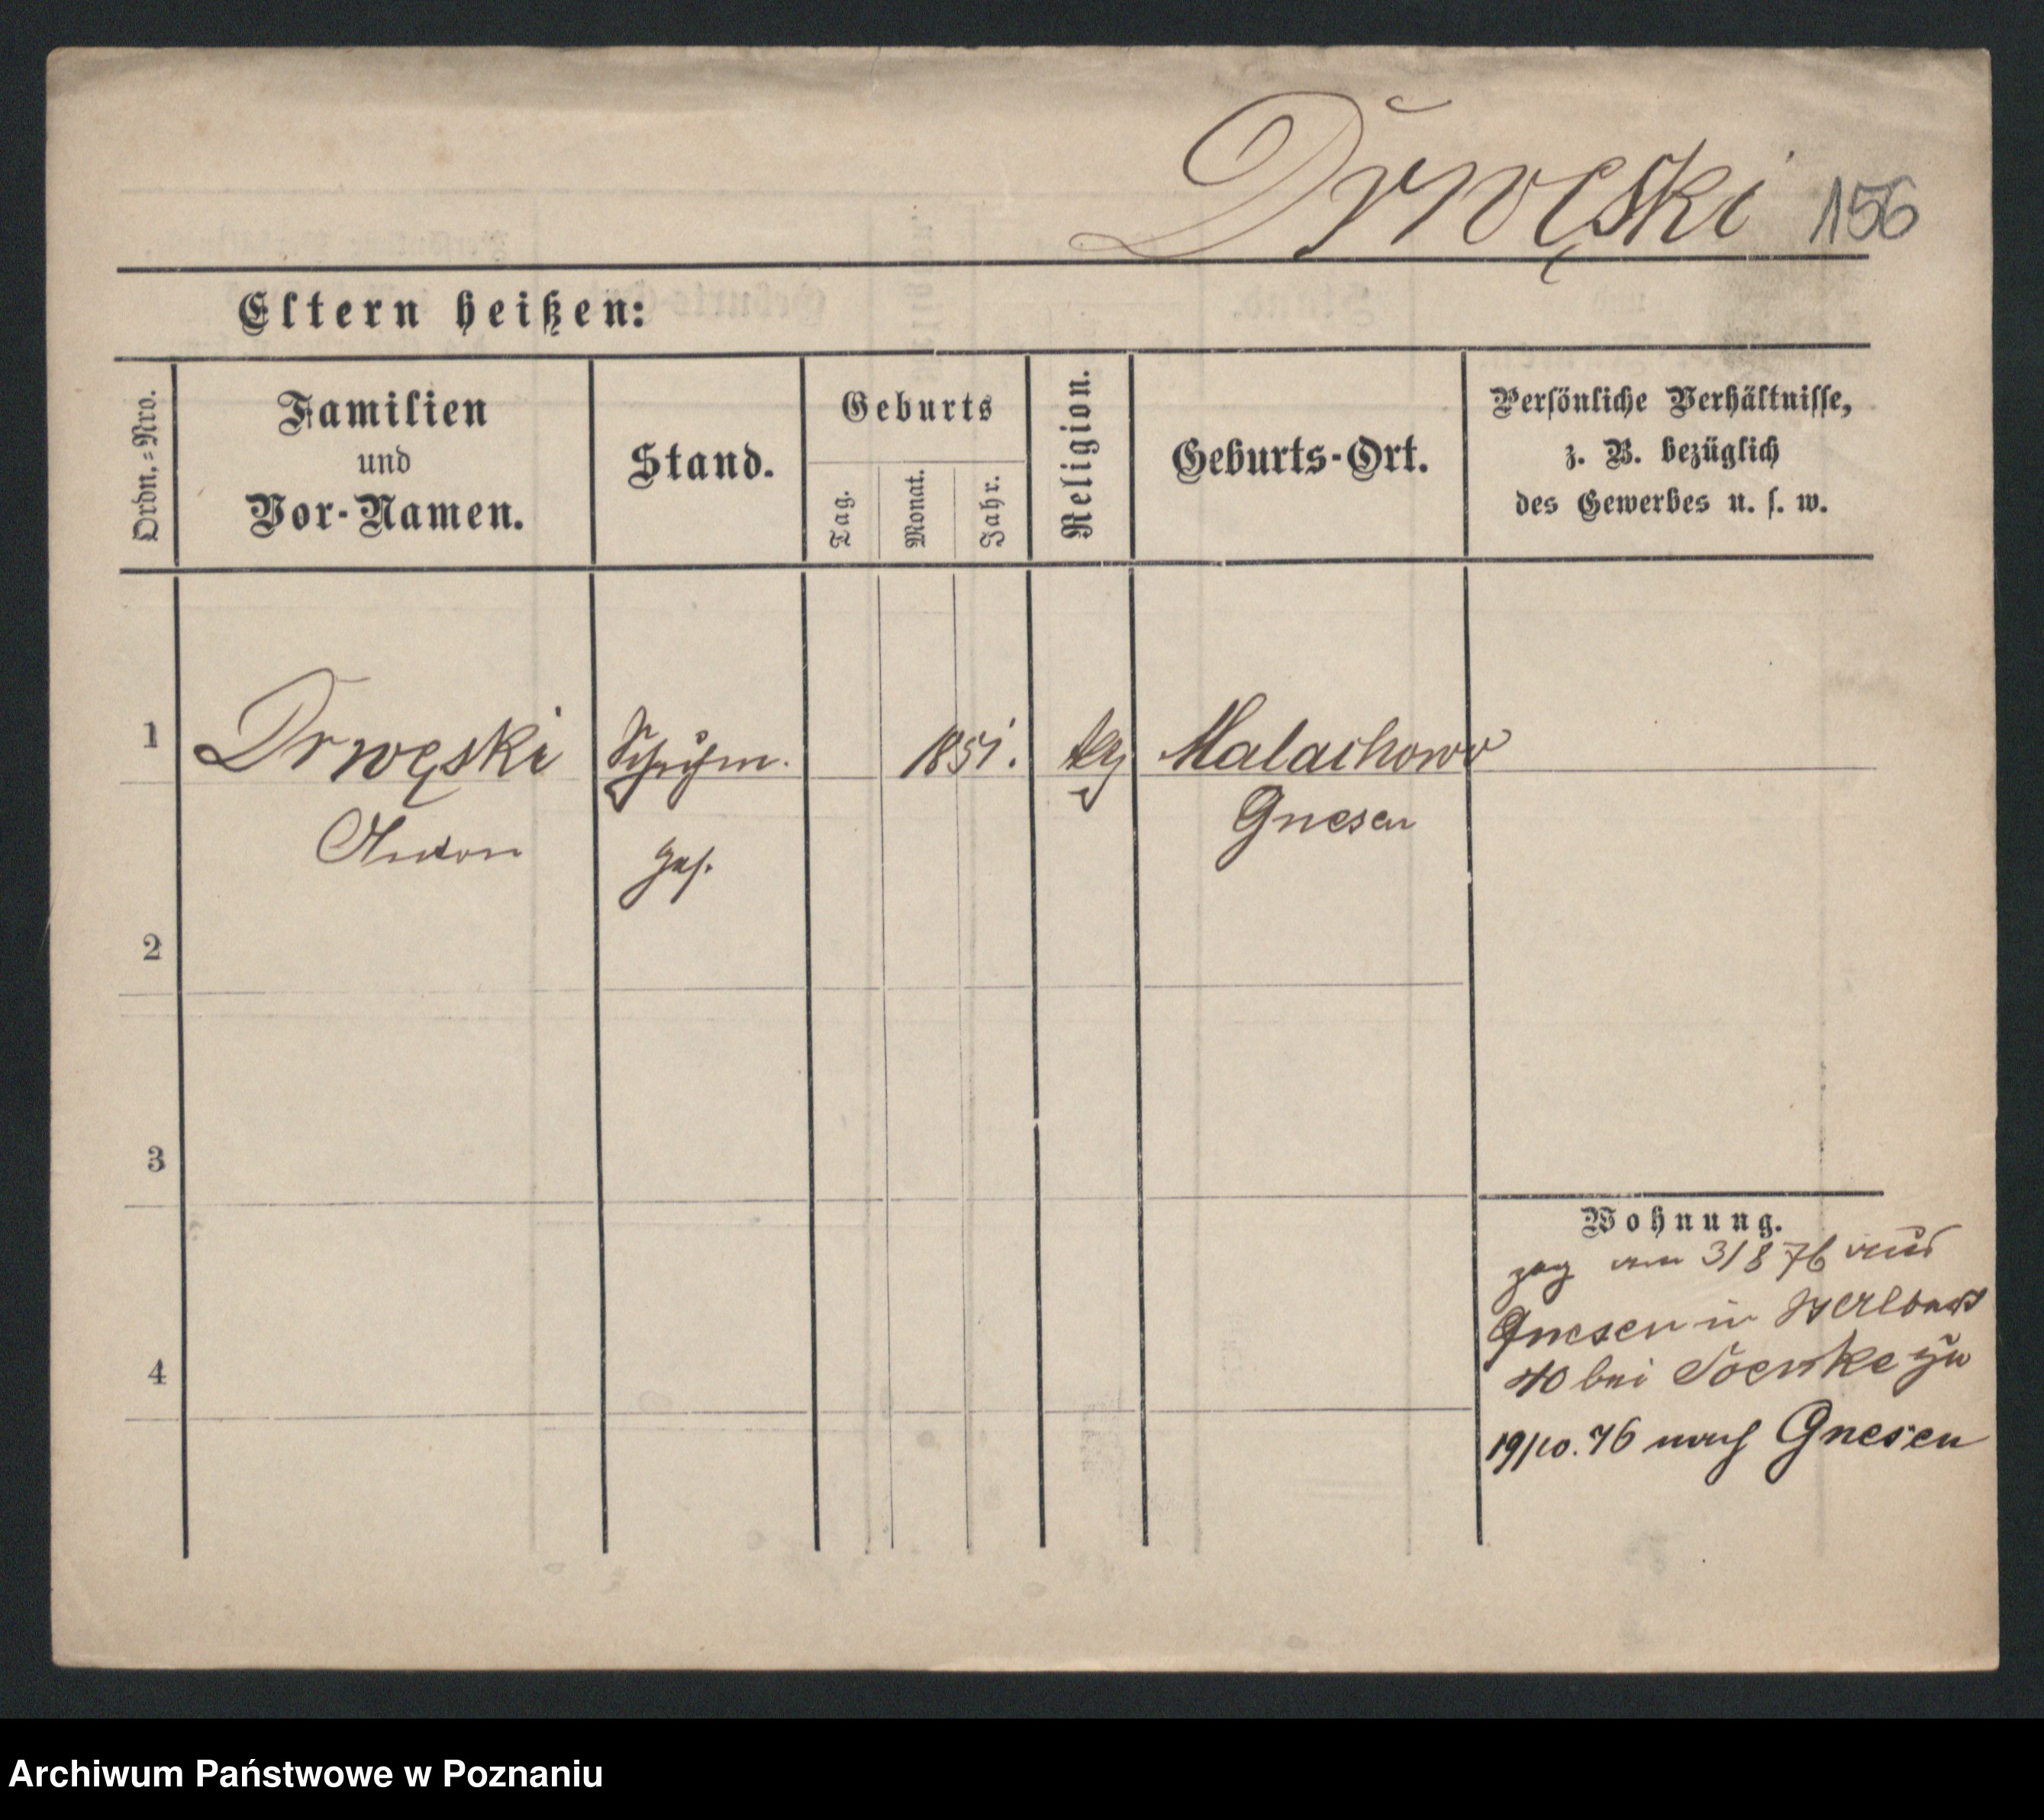 Drwęski 156
Eltern heißen:
Ordn.=Nro.
Familien
und
Vor-Namen.
Stand.
Geburts
Tag.
Monat.
Jahr.
Religion.
Geburts-Ort.
Persönliche Verhältnisse,
z. B. bezüglich
des Gewerbes u. s. w.
1 Drwęski Schuhm. 1851. Malachowo
Anton Ges. Gnesen
2
3
4
Wohnung.
zog am 3/8 76 aus
Gnesen in
40 bei zu
19/10. 76 nach Gnesen
Archiwum Państwowe w Poznaniu